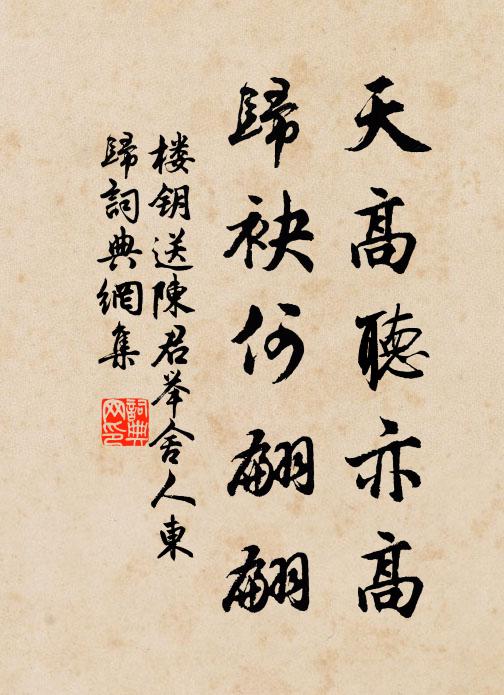 天高聽亦高
歸袂何翩翩
楼钥送陳君举舍人東
歸詞典網集
詞典
网印